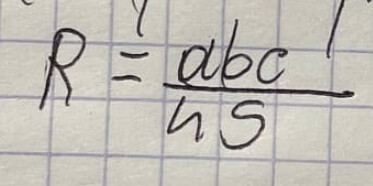 R = abc / 4S